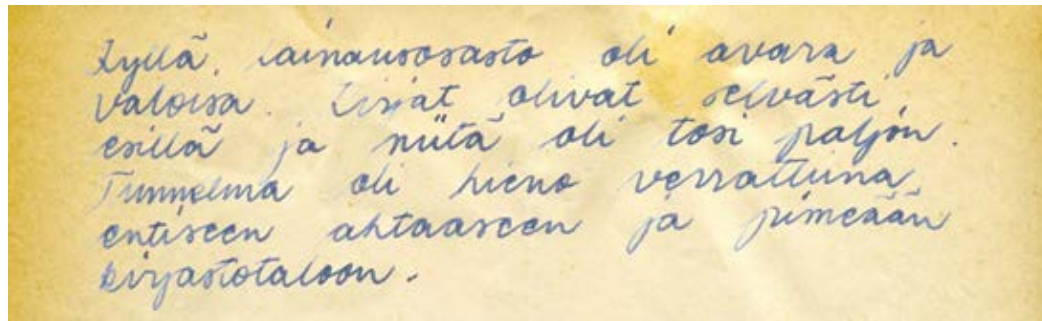 Kyllä. Lainausosasto oli avara ja
valoisa. Kirjat olivat selvästi
esillä ja niitä oli tosi paljon.
Tunnelma oli hieno verrattuna
entiseen ahtaaseen ja pimeään
kirjastotaloon.